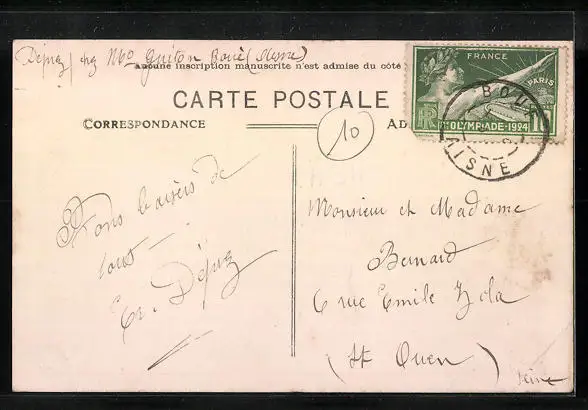 Dépaz chez Mso Guiton Boué (Aisne)
aucune inscription manuscrite n'est admise du côté
FRANCE
PARIS
RF
8ME OLYMPIADE-1924
10
BOUÉ
AISNE
CARTE POSTALE
10
CORRESPONDANCE
AD
Bons baisers de
tous
Dépaz
Monsieur et Madame
Bernard
6 rue Emile Zola
(St Ouen)
Seine